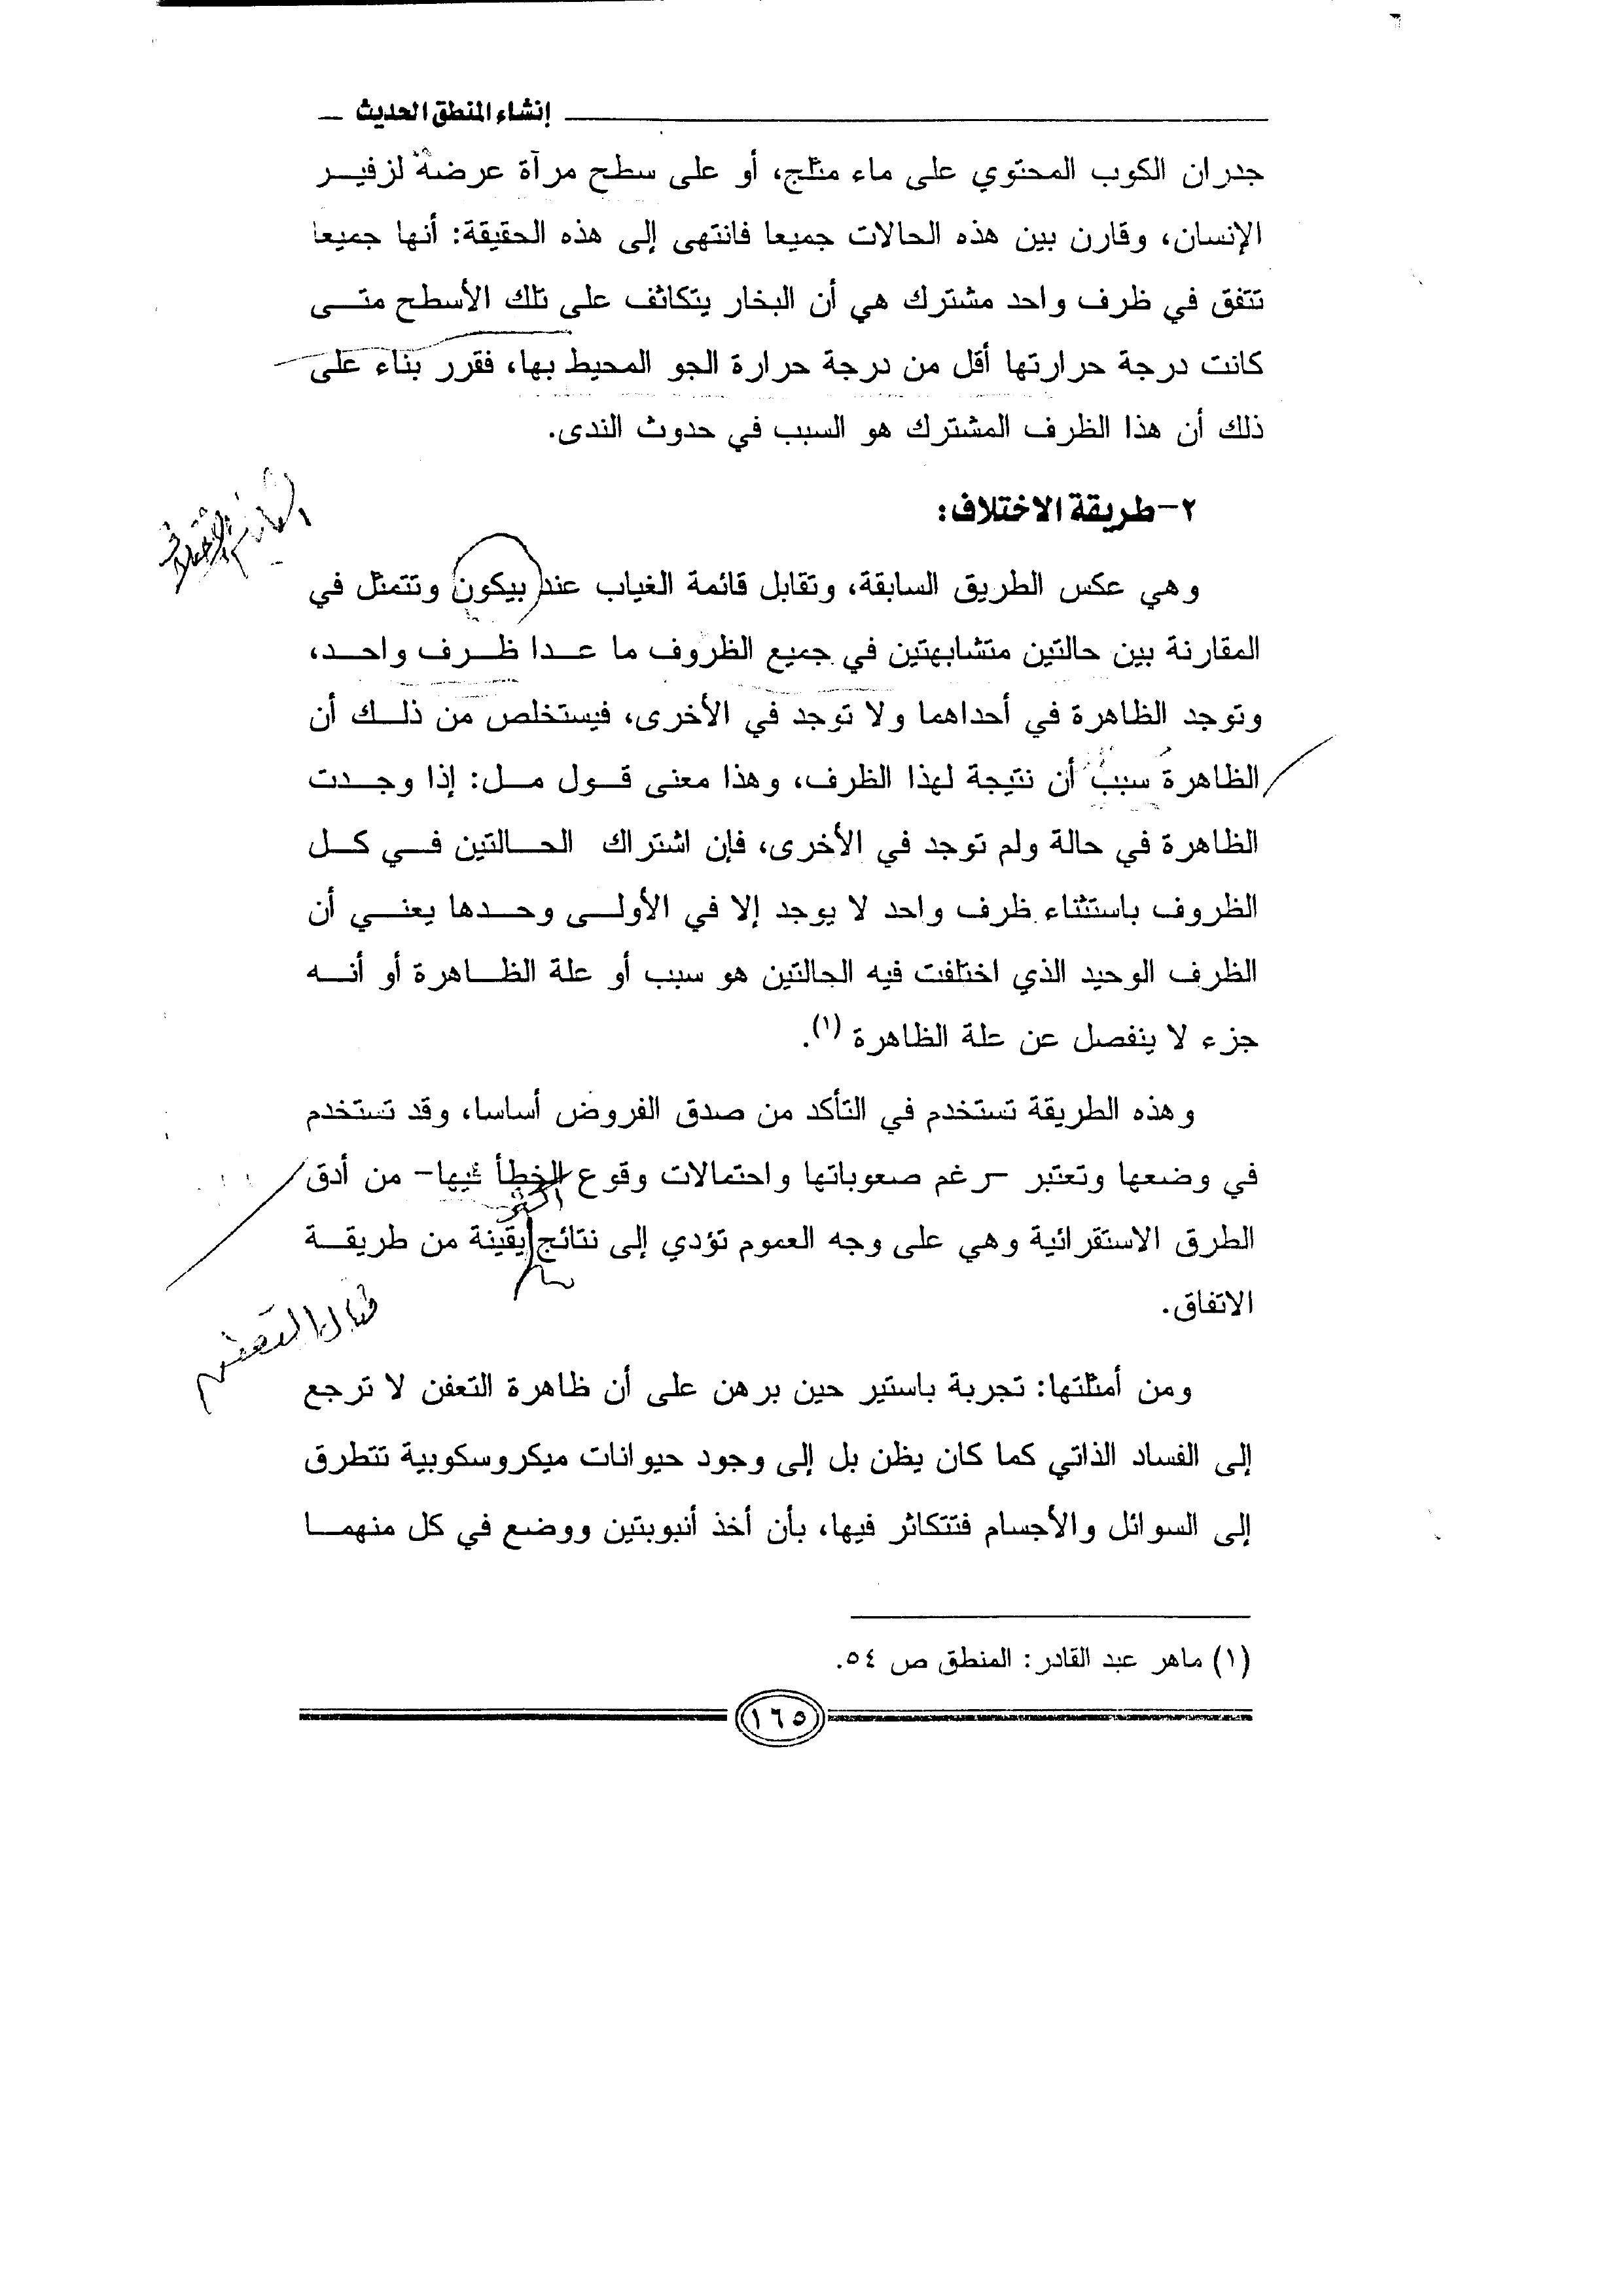 إنشاء المنطق الحديث
جدران الكوب المحتوي على ماء مثلج، أو على سطح مرآة عرضة لزفيـــر
الإنسان، وقارن بين هذه الحالات جميعا فانتهى إلى هذه الحقيقة: أنها جميعا
تتفق في ظرف واحد مشترك هي أن البخار يتكاثف على تلك الأسطح متـــى
كانت درجة حرارتها أقل من درجة حرارة الجو المحيط بها، فقرر بناء على
ذلك أن هذا الظرف المشترك هو السبب في حدوث الندى.
٢- طريقة الاختلاف:
وهي عكس الطريق السابقة، وتقابل قائمة الغياب عند بيكون وتتمثل في
المقارنة بين حالتين متشابهتين في جميع الظروف ما عـــدا ظـــرف واحـــد،
وتوجد الظاهرة في أحداهما ولا توجد في الأخرى، فيستخلص من ذلـــك أن
الظاهرة سبب أن نتيجة لهذا الظرف، وهذا معنى قـــول مـــل: إذا وجـــدت
الظاهرة في حالة ولم توجد في الأخرى، فإن اشتراك الحـــالتين فـــي كـــل
الظروف باستثناء ظرف واحد لا يوجد إلا في الأولـــى وحـــدها يعنـــي أن
الظرف الوحيد الذي اختلفت فيه الحالتين هو سبب أو علة الظـــاهرة أو أنـــه
جزء لا ينفصل عن علة الظاهرة (١).
وهذه الطريقة تستخدم في التأكد من صدق الفروض أساسا، وقد تستخدم
في وضعها وتعتبر -رغم صعوباتها واحتمالات وقوع الخطأ فيها- من أدق
أكثر
الطرق الاستقرائية وهي على وجه العموم تؤدي إلى نتائج يقينة من طريقـــة
الاتفاق.
ومن أمثلتها: تجربة باستير حين برهن على أن ظاهرة التعفن لا ترجع
إلى الفساد الذاتي كما كان يظن بل إلى وجود حيوانات ميكروسكوبية تتطرق
إلى السوائل والأجسام فتتكاثر فيها، بأن أخذ أنبوبتين ووضع في كل منهمـــا
(١) ماهر عبد القادر: المنطق ص ٥٤.
١٦٥